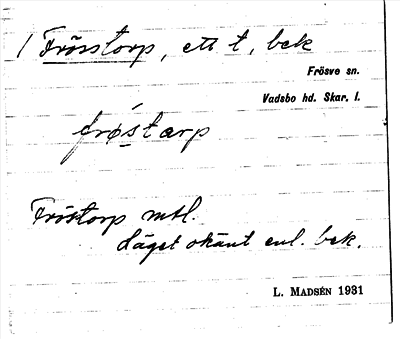 1 Frörstorp, ett t, bek
Frösve sn.
Vadsbo hd. Skar. l.
frǿstarp
Fröstorp mtl.
Läget okänt enl. bek.
L. MADSÉN 1931